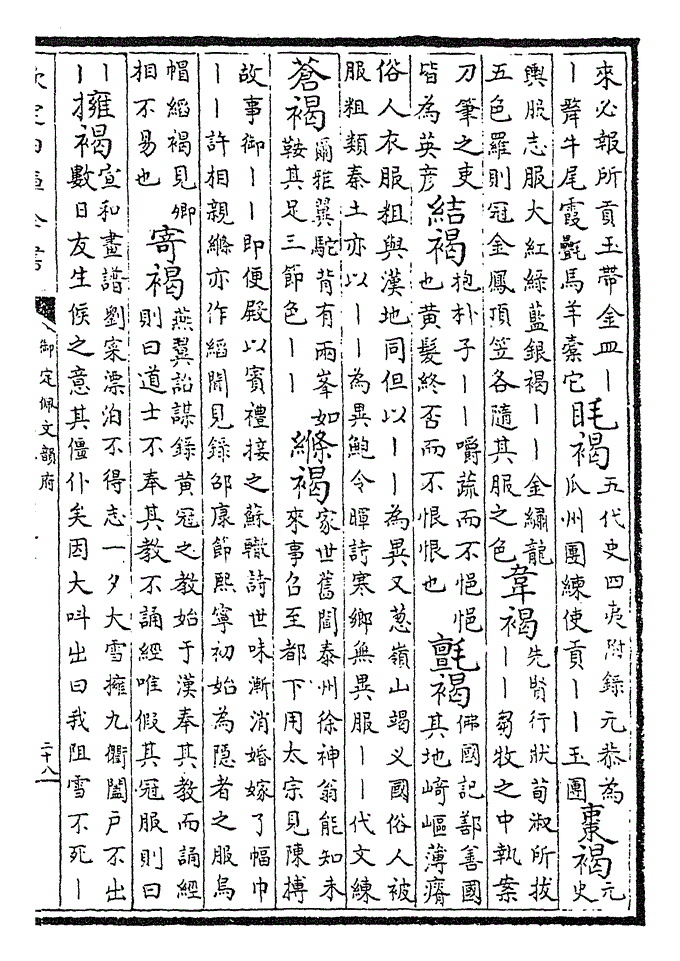 來必報所貢玉帶金皿丨丨犛牛尾霞氎馬羊橐它 毦褐 五代史四夷附録元恭為瓜州團練使貢丨丨玉團 棗褐 元史
輿服志服大紅綠藍銀褐丨丨金繡龍五色羅則冠金鳳頂笠各隨其服之色 韋褐 先賢行狀荀淑所拔丨丨芻牧之中執案
刀筆之吏皆為英彥 結褐 抱朴子丨丨嚼蔬而不悒悒也黄髮終否而不恨恨也 氈褐 佛國記鄯善國其地崎嶇薄瘠
俗人衣服粗與漢地同但以丨丨為異又葱嶺山竭义國俗人被服粗類秦土亦以丨丨為異鮑令暉詩寒鄉無異服丨丨代文練
蒼褐 爾雅翼駝背有兩峯如鞍其足三節色丨丨 縧褐 家世舊聞泰州徐神翁能知未來事召至都下用太宗見陳摶
故事御丨丨即便殿以賓禮接之蘇轍詩世味漸消婚嫁了幅巾丨丨許相親縧亦作縚聞見録邵康節熙寧初始為隐者之服烏
帽縚褐見卿相不易也 寄褐 燕翼詒謀録黄冠之教始于漢奉其教而誦經則曰道士不奉其教不誦經唯假其冠服則曰
丨丨 擁褐 宣和畫譜劉寀漂泊不得志一夕大雪擁九衢闔戶不出數日友生候之意其僵仆矣因大呌出曰我阻雪不死丨
欽定四庫全書
御定佩文韻府
二十八